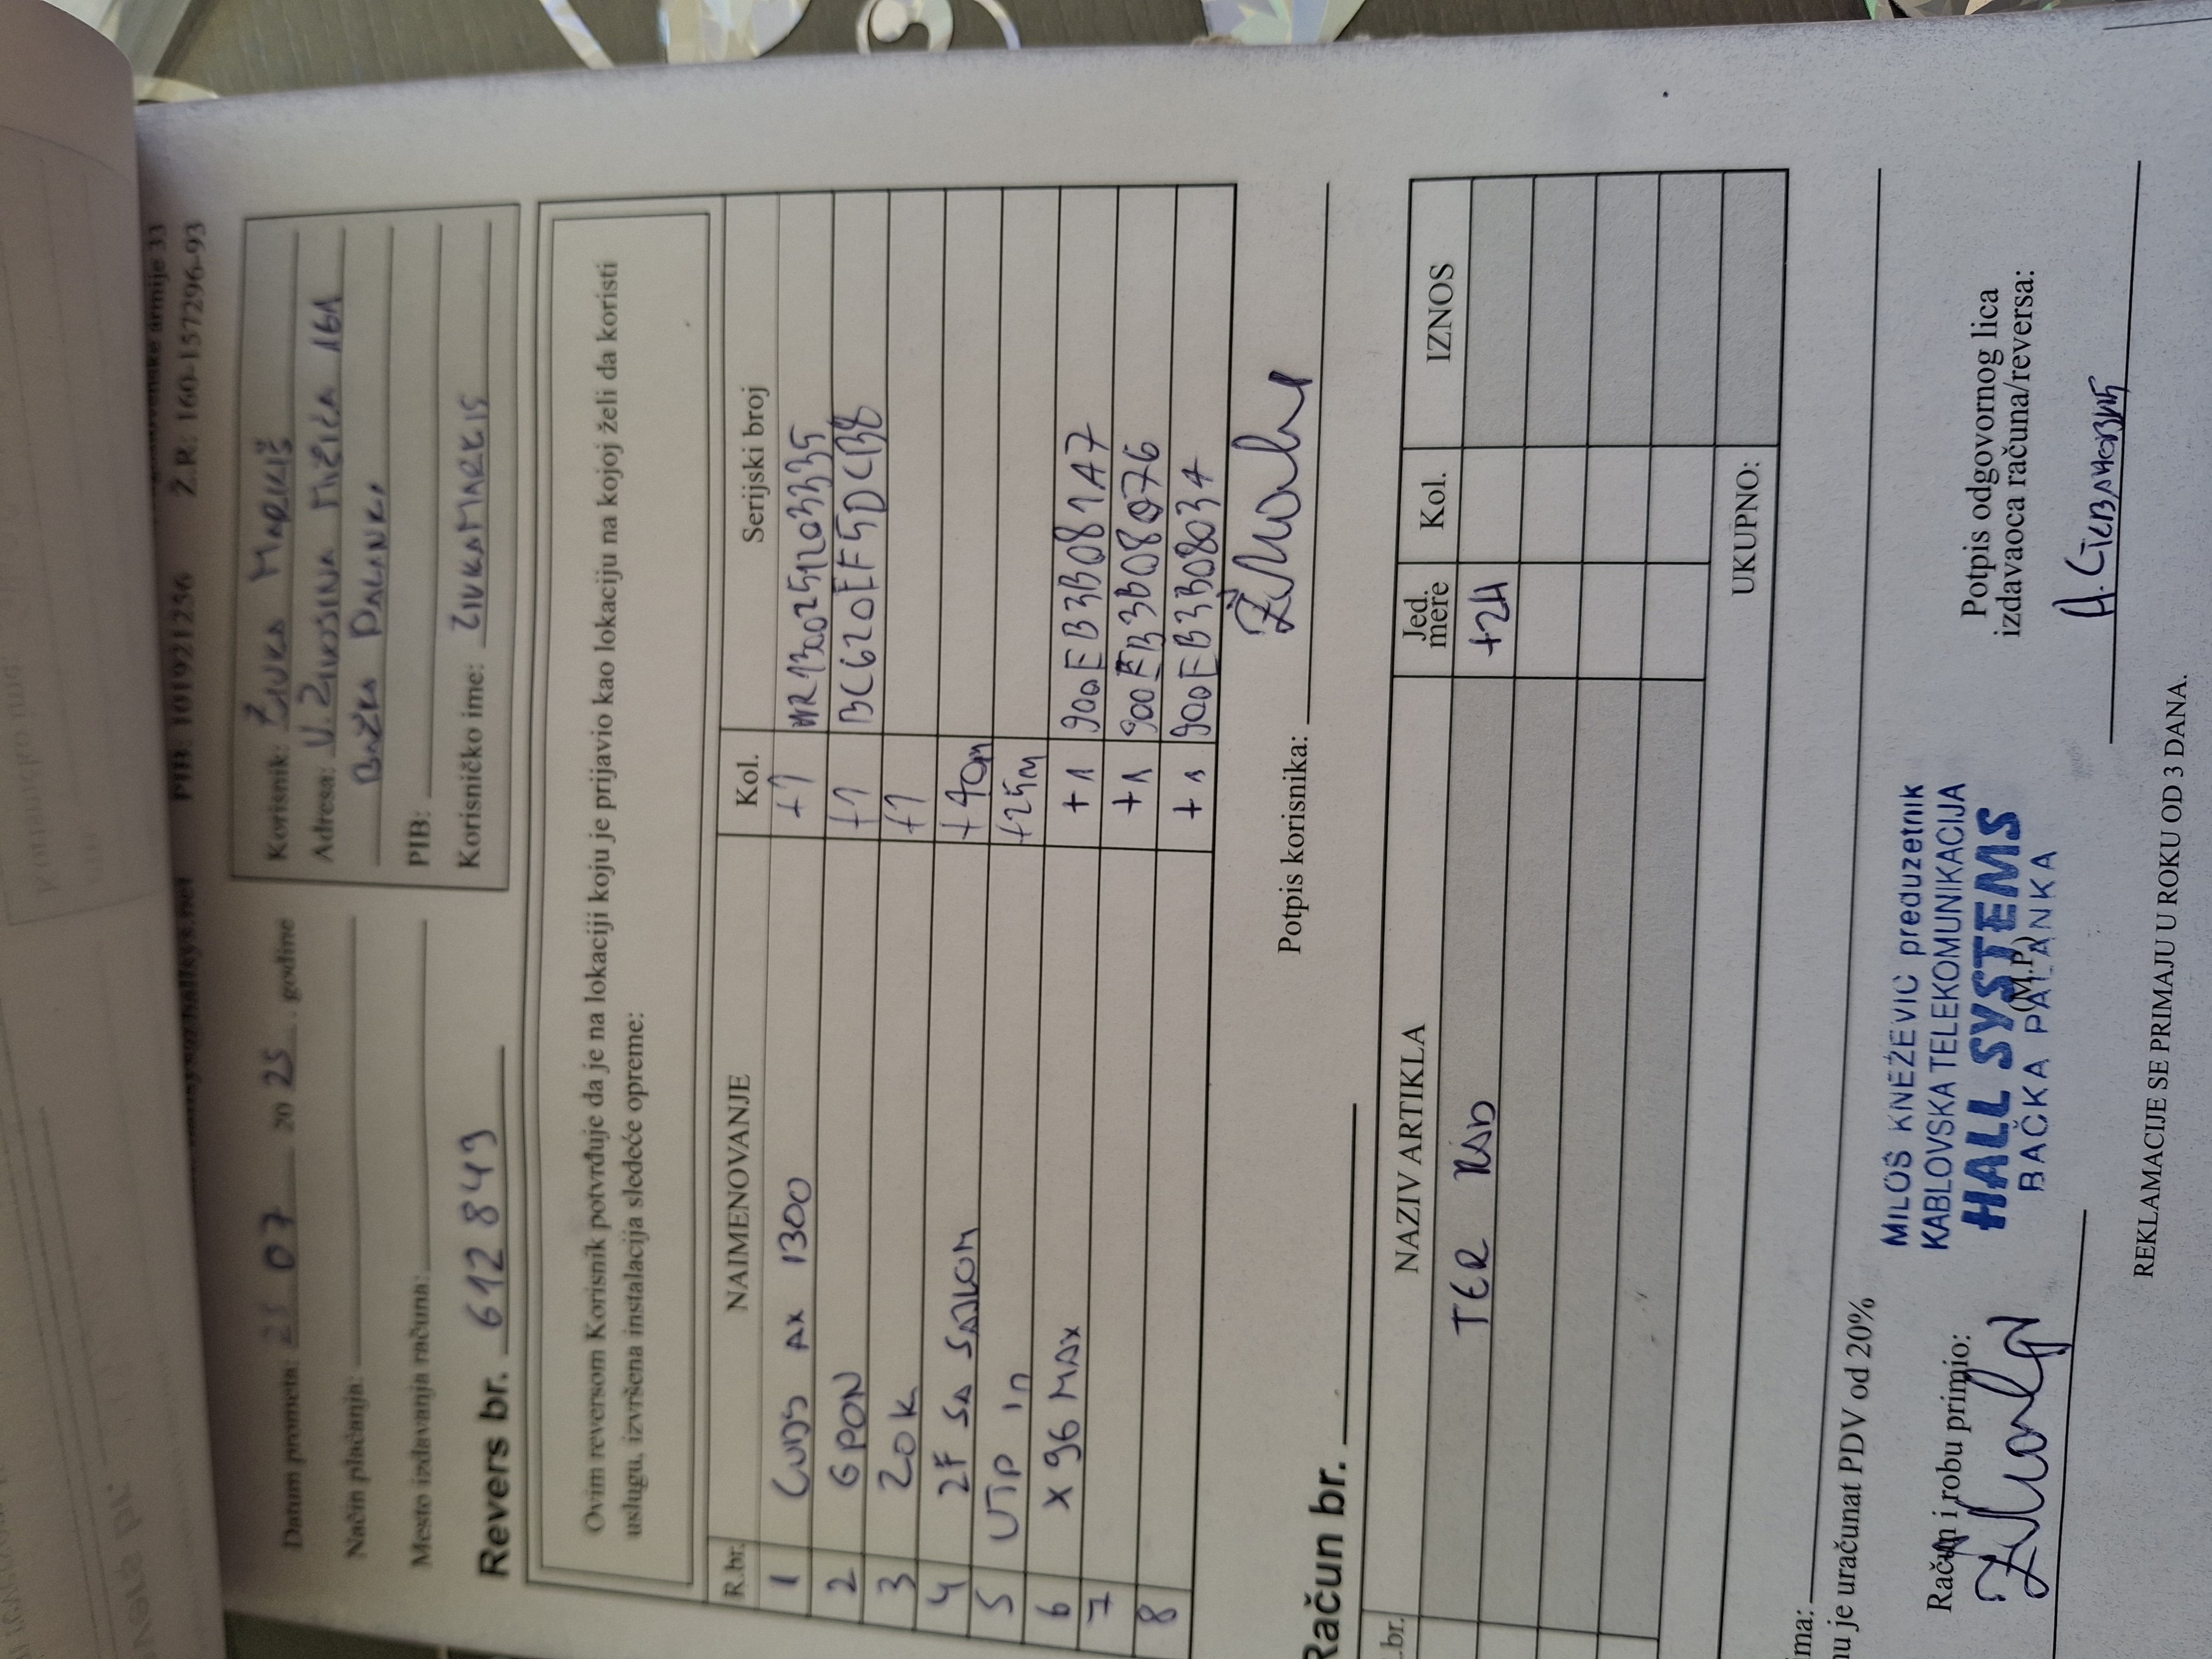 PIB: 101921256 Ž.R: 160-157296-93
Datum prometa: 25 07 2025. godine
Način plaćanja:
Mesto izdavanja računa:
Revers br. 612849
Korisnik: Živka Markiš
Adresa: V. Živojina Mišića 161
Bačka Palanka
PIB:
Korisničko ime: ZIVKAMARKIS
Ovim reversom Korisnik potvrđuje da je na lokaciji koju je prijavio kao lokaciju na kojoj želi da koristi
uslugu, izvršena instalacija sledeće opreme:
R.br. NAIMENOVANJE Kol. Serijski broj
1 CUDY AX 1300 +1
2 GPON +1 BC620EF5DC138
3 ZOK +1
4 2F SA SAJLOM +40m
5 UTP in +25m
6 X96 MAX +1 900EB3B081A7
7 +1 900EB3B08076
8 +1 900EB3B08034
Potpis korisnika:
Račun br.
br. NAZIV ARTIKLA Jed. mere Kol. IZNOS
TER RAD +2H
UKUPNO:
ma:
nu je uračunat PDV od 20%
Račun i robu primio:
MILOŠ KNEŽEVIĆ preduzetnik
KABLOVSKA TELEKOMUNIKACIJA
HALL SYSTEMS
(M.P.)
BAČKA PALANKA
Potpis odgovornog lica
izdavaoca računa/reversa:
REKLAMACIJE SE PRIMAJU U ROKU OD 3 DANA.